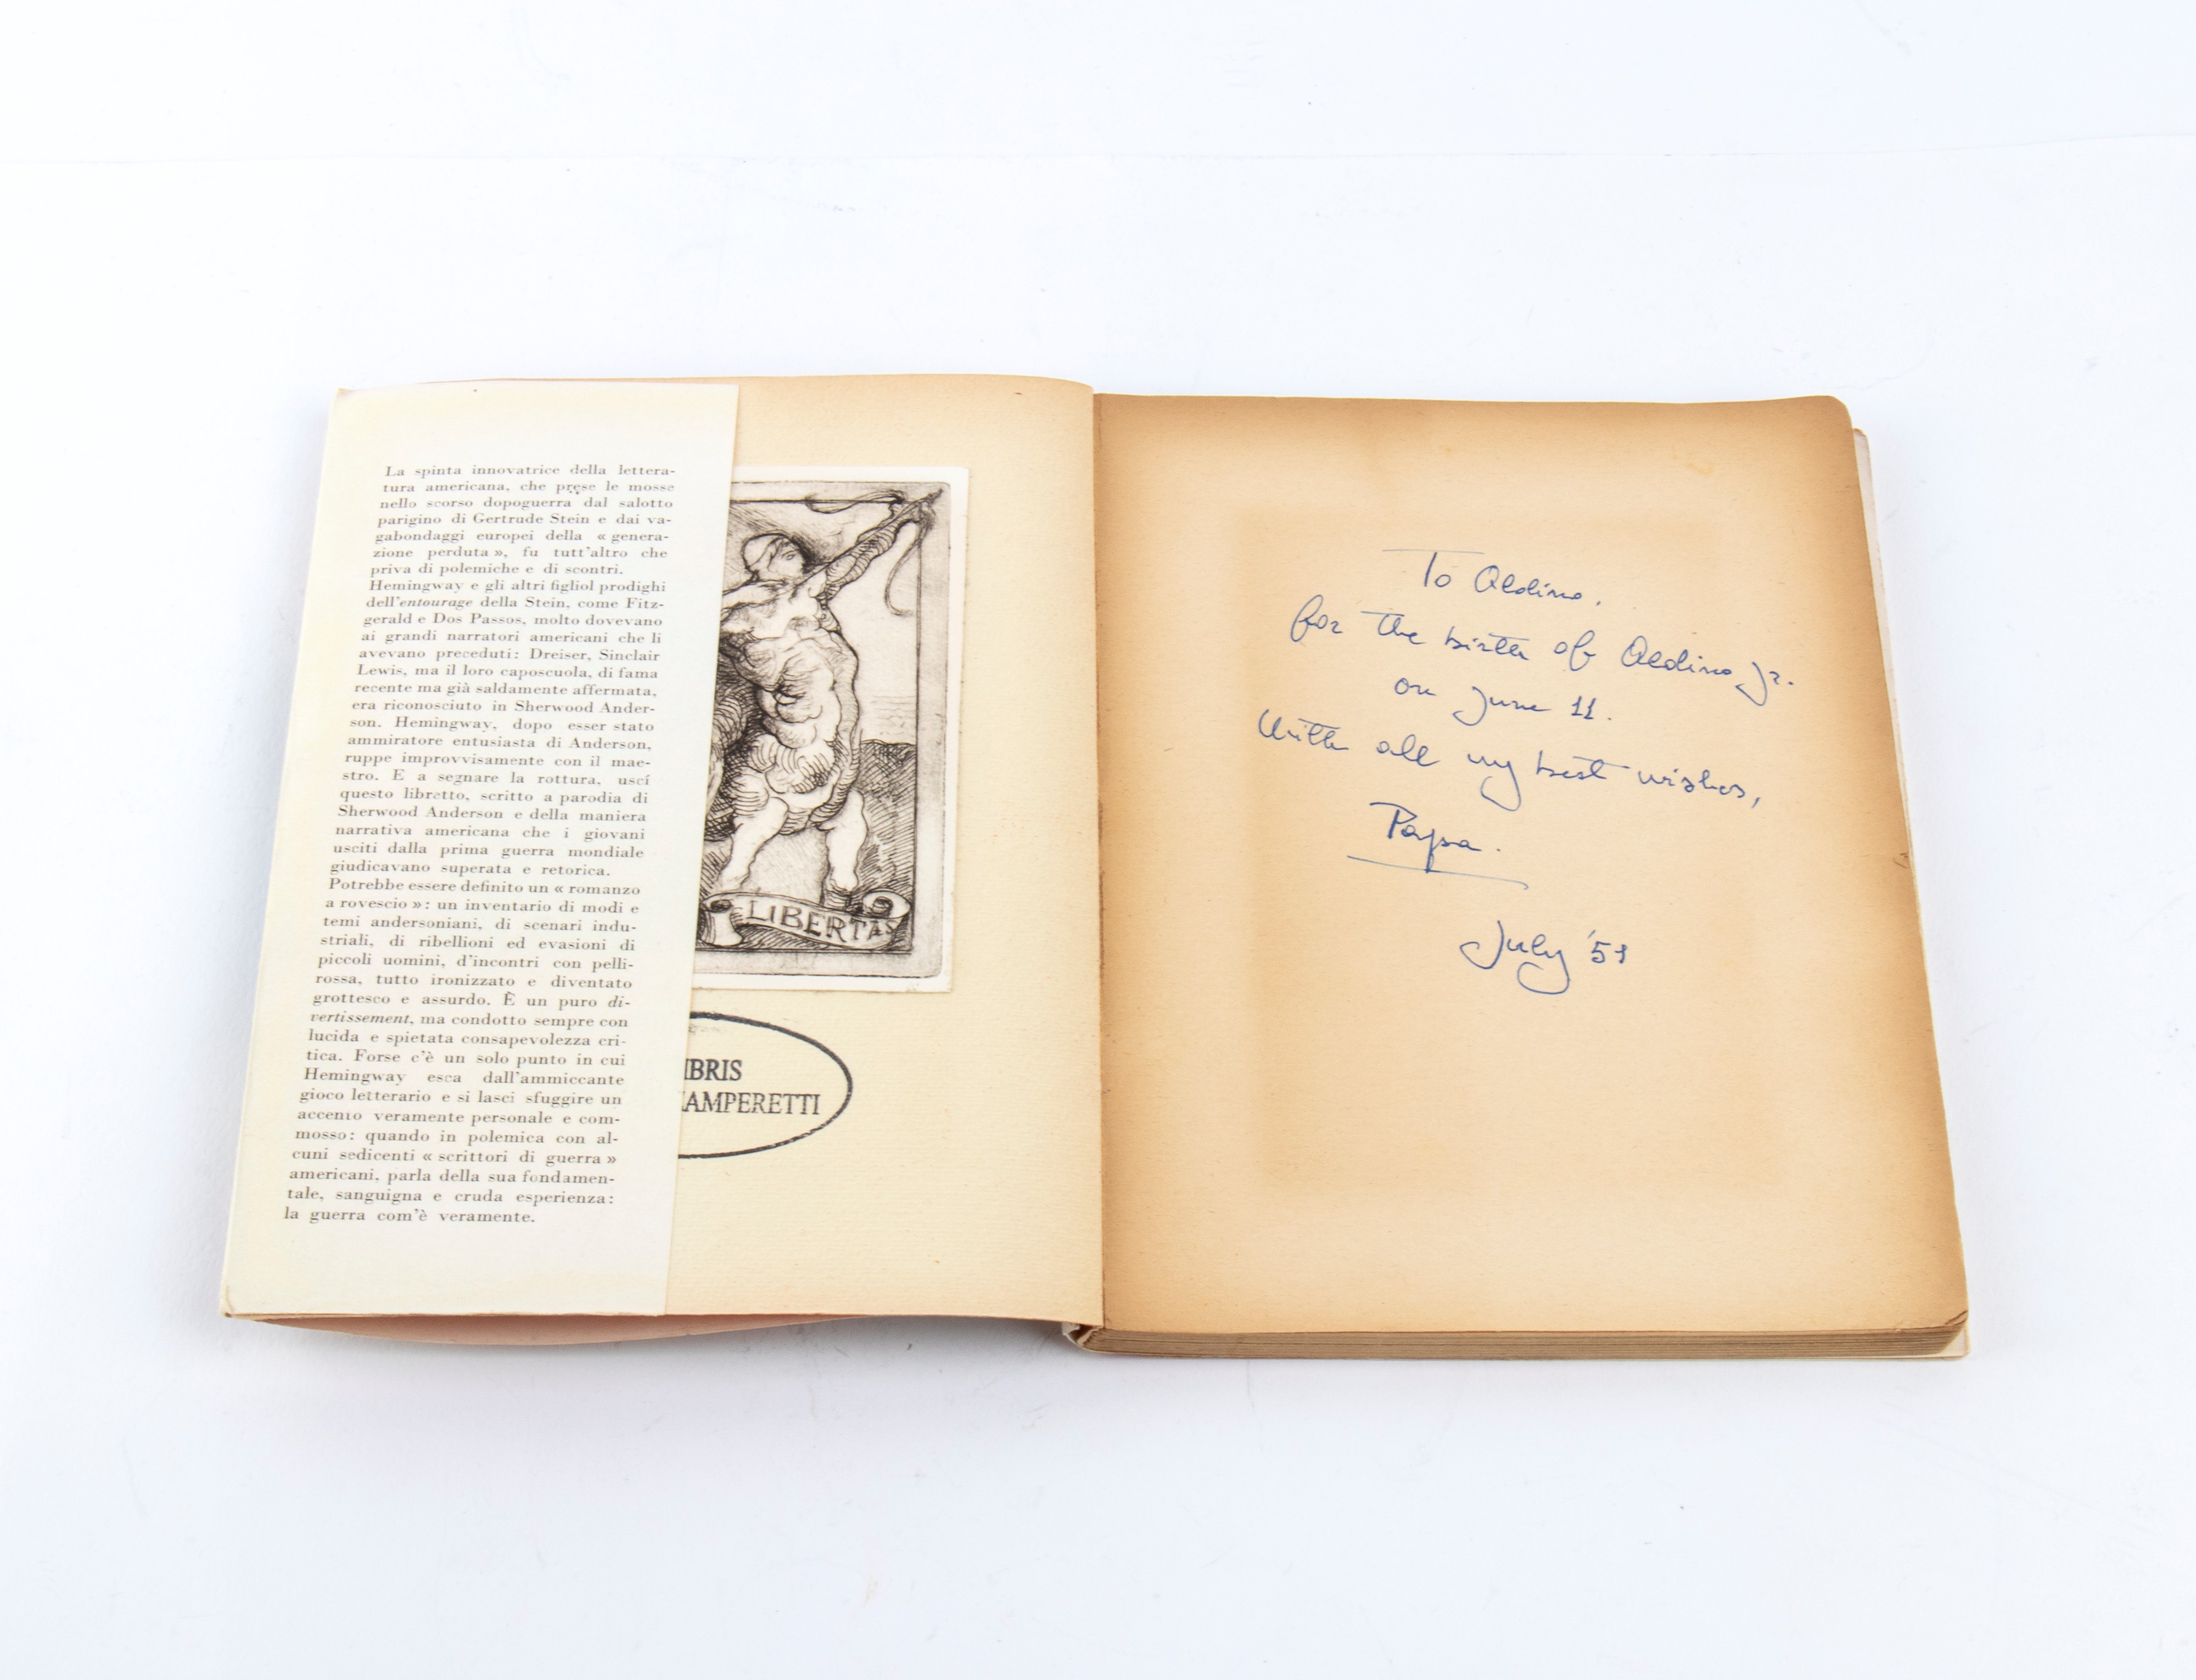 La spinta innovatrice della lettera-
tura americana, che prese le mosse
nello scorso dopoguerra dal salotto
parigino di Gertrude Stein e dai va-
gabondaggi europei della « genera-
zione perduta », fu tutt'altro che
priva di polemiche e di scontri.
Hemingway e gli altri figliol prodighi
dell'entourage della Stein, come Fitz-
gerald e Dos Passos, molto dovevano
ai grandi narratori americani che li
avevano preceduti: Dreiser, Sinclair
Lewis, ma il loro caposcuola, di fama
recente ma già saldamente affermata,
era riconosciuto in Sherwood Ander-
son. Hemingway, dopo esser stato
ammiratore entusiasta di Anderson,
ruppe improvvisamente con il mae-
stro. E a segnare la rottura, uscí
questo libretto, scritto a parodia di
Sherwood Anderson e della maniera
narrativa americana che i giovani
usciti dalla prima guerra mondiale
giudicavano superata e retorica.
Potrebbe essere definito un « romanzo
a rovescio »: un inventario di modi e
temi andersoniani, di scenari indu-
striali, di ribellioni ed evasioni di
piccoli uomini, d'incontri con pelli-
rossa, tutto ironizzato e diventato
grottesco e assurdo. È un puro di-
vertissement, ma condotto sempre con
lucida e spietata consapevolezza cri-
tica. Forse c'è un solo punto in cui
Hemingway esca dall'ammiccante
gioco letterario e si lasci sfuggire un
accento veramente personale e com-
mosso: quando in polemica con al-
cuni sedicenti « scrittori di guerra »
americani, parla della sua fondamen-
tale, sanguigna e cruda esperienza:
la guerra com'è veramente.
LIBERTAS
IBRIS
IAMPERETTI
To Aldino,
for the birth of Aldino Jr.
on June 11.
With all my best wishes,
Papa.
July '51